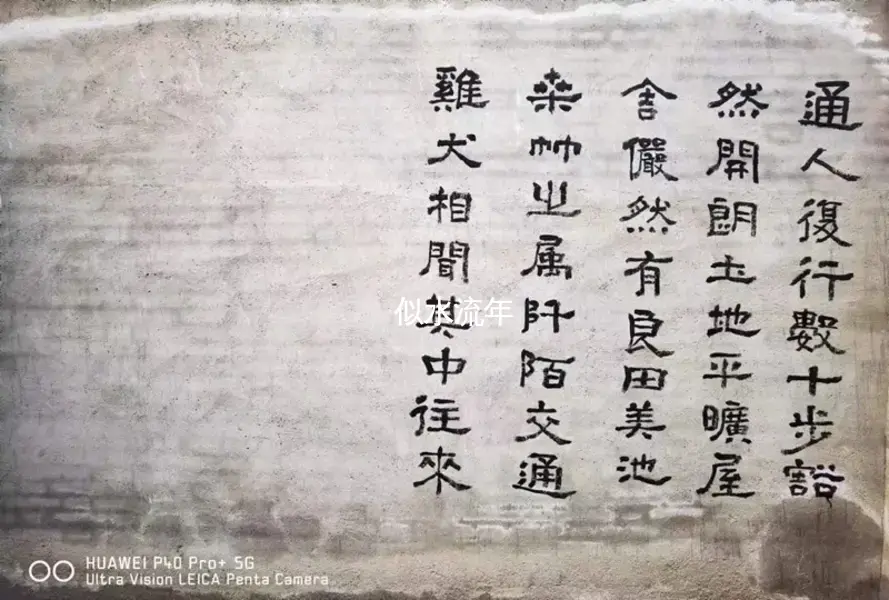 通人復行數十步豁
然開朗土地平曠屋
舍儼然有良田美池
桑竹之属阡陌交通
雞犬相聞其中往來
似水流年
HUAWEI P40 Pro+ 5G
Ultra Vision LEICA Penta Camera